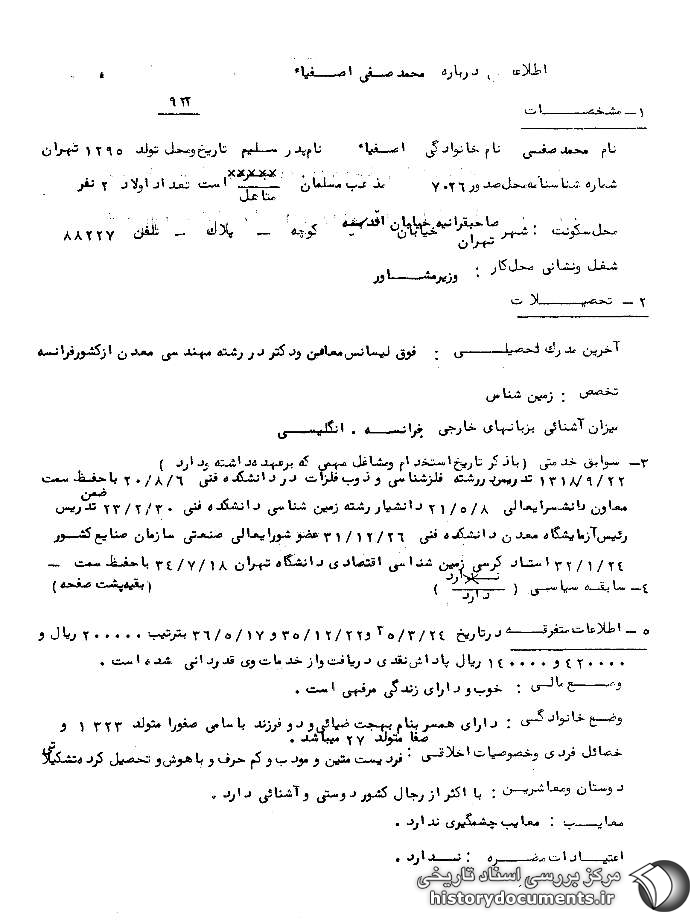 اطلاعاتی درباره محمد صفی اصفیاء
۹۲۲
۱- مشخصات
نام محمد صفی نام خانوادگی اصفیاء نام پدر سلیم تاریخ ومحل تولد ۱۲۹۵ تهران
شماره شناسنامه محل صدور ۷۰۲۶ مذهب مسلمان ××××× متاهل است تعداد اولاد ۲ نفر
محل سکونت : شهر تهران خیابان صاحبقرانیه خیابان اقدسیه کوچه – پلاک – تلفن ۸۸۲۲۷
شغل ونشانی محل کار : وزیر مشاور
۲- تحصیلات
آخرین مدرک تحصیلی : فوق لیسانس معادن ودکتر در رشته مهندسی معدن از کشور فرانسه
تخصص : زمین شناس
میزان آشنائی بزبانهای خارجی فرانسه . انگلیسی
۳- سوابق خدمتی (باذکر تاریخ استخدام ومشاغل مهمی که برعهده داشته ودارد )
۱۳۱۸/۹/۲۲ تدریس در رشته فلزشناسی و ذوب فلزات در دانشکده فنی ۲۰/۸/۶ با حفظ سمت
معاون دانشسرایعالی ۲۱/۵/۸ دانشیار رشته زمین شناسی دانشکده فنی ۲۳/۲/۳۰ ضمن تدریس
رئیس آزمایشگاه معدن دانشکده فنی ۳۱/۱۲/۲۶ عضو شورایعالی صنعتی سازمان صنایع کشور
۳۲/۱/۲۴ استاد کرسی زمین شناسی اقتصادی دانشگاه تهران ۳۴/۷/۱۸ با حفظ سمت –
۴- سابقه سیاسی ( ندارد دارد ) (بقیه پشت صفحه )
۵- اطلاعات متفرقه در تاریخ ۳۵/۳/۲۴ و ۳۵/۱۲/۲۲ و ۳۶/۵/۱۷ بترتیب ۲۰۰۰۰۰ ریال و
۴۲۰۰۰۰ و ۱۴۰۰۰۰ ریال پاداش نقدی دریافت واز خدمات وی قدردانی شده است .
وضع مالی : خوب و دارای زندگی مرفهی است .
وضع خانوادگی : دارای همسر بنام بهجت ضیائی و دو فرزند با سامی صفورا متولد ۱۳۲۳ و
صفا متولد ۲۷ میباشد .
خصائل فردی وخصوصیات اخلاقی : فردیست متین و مودب و کم حرف و باهوش و تحصیل کرده تشکیلاتی
دوستان ومعاشرین : با اکثر از رجال کشور دوستی و آشنائی دارد .
معایب : معایب چشمگیری ندارد .
اعتیادات مضره : ندارد .
مرکز بررسی اسناد تاریخی
historydocuments.ir